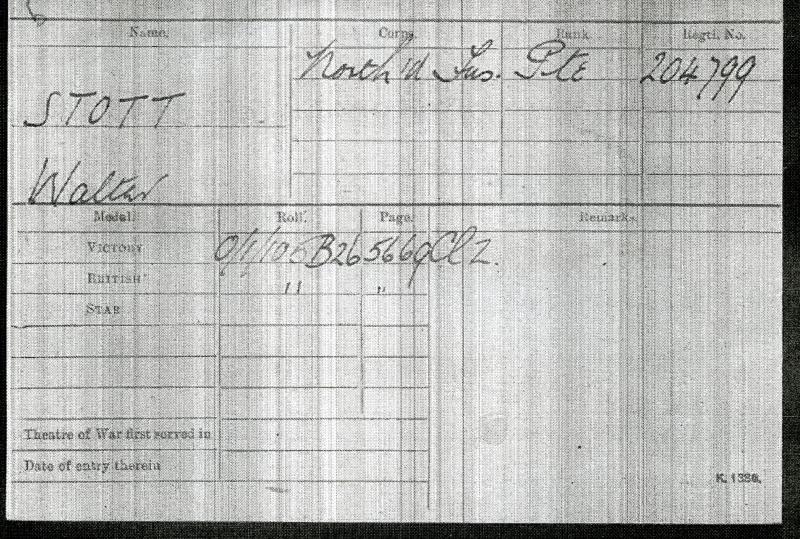 Name. Corps. Rank. Regtl. No.
North'd Fus. Pte 204799
STOTT
Walter
Medal. Roll. Page. Remarks.
VICTORY O/1/105B26 5669 Cl Z.
BRITISH " "
STAR
Theatre of War first served in
Date of entry therein
K. 1380.